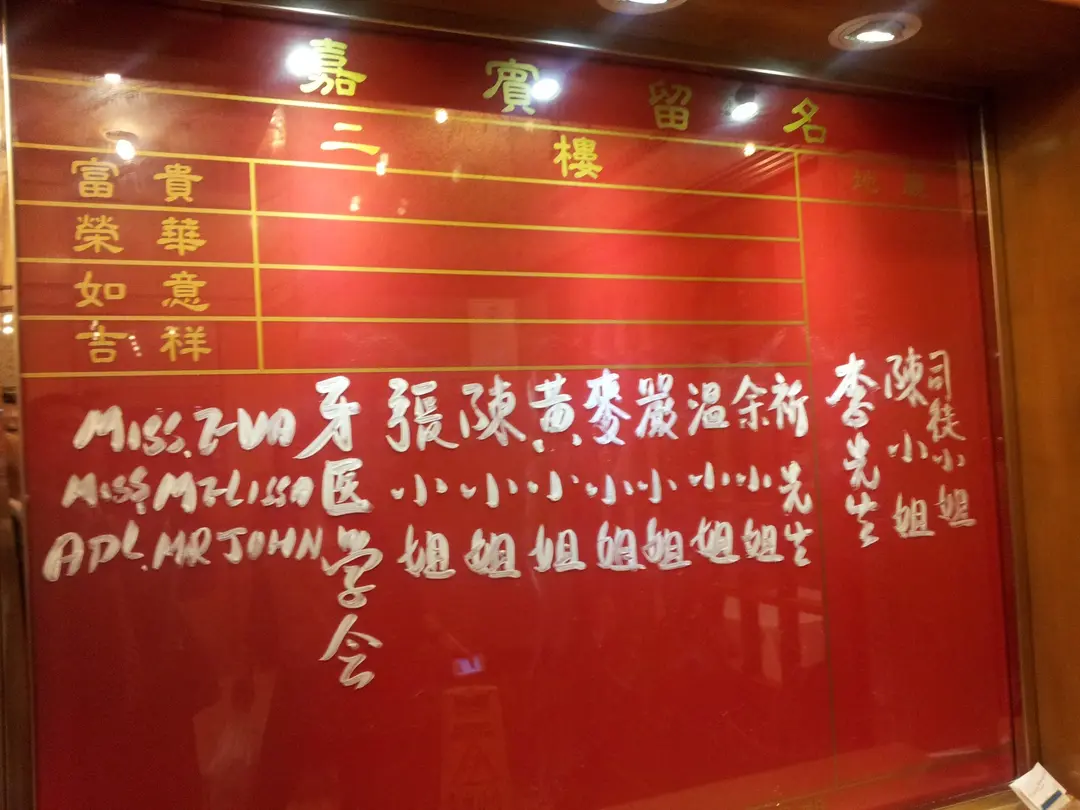 嘉賓留名
二樓
地廳
富貴
榮華
如意
吉祥
司徒小姐
陳小姐
李先生
祈先生
余小姐
溫小姐
嚴小姐
麥小姐
黃小姐
陳小姐
張小姐
牙医学会
MISS. EVA
MISS. MELISSA
APL. MR JOHN